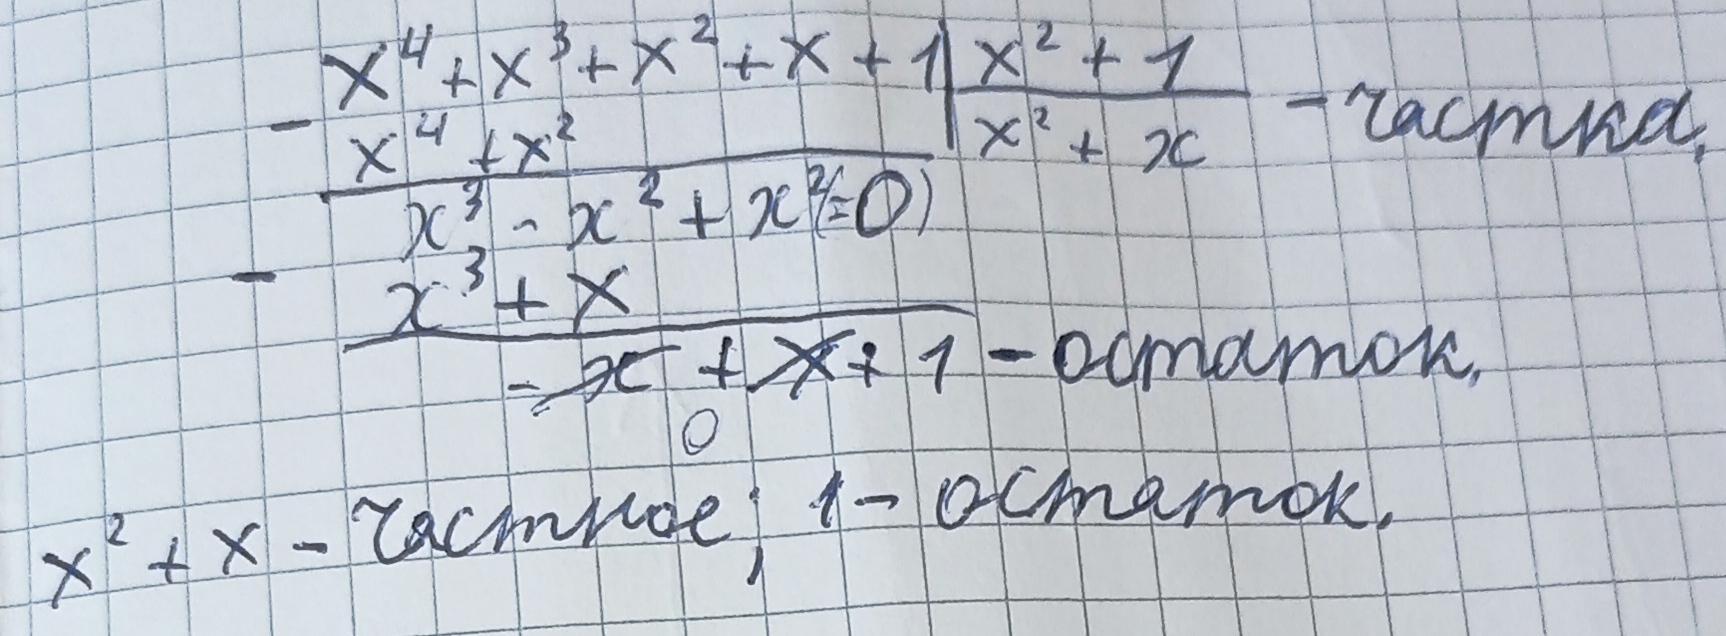 x⁴ + x³ + x² + x + 1 | x² + 1
- x⁴ + x² | x² + x - частка.
x³ - x² + x² (=0)
- x³ + x
- x + x + 1 - остаток.
0
x² + x - частное; 1 - остаток.